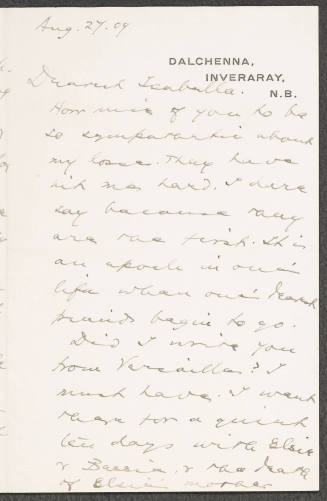 Aug. 27. 09
DALCHENNA,
INVERARAY,
N.B.
Dearest Isabella.
How nice of you to be
so sympathetic about
my losses. They have
hit me hard. I dare
say because they
are the first. It is
an epoch in one's
life when one's dearest
friends begin to go.
Did I write you
from Versailles? I
must have. I went
there for a quiet
ten days with Elsie
& Bessie, & the death
of Elsie's mother